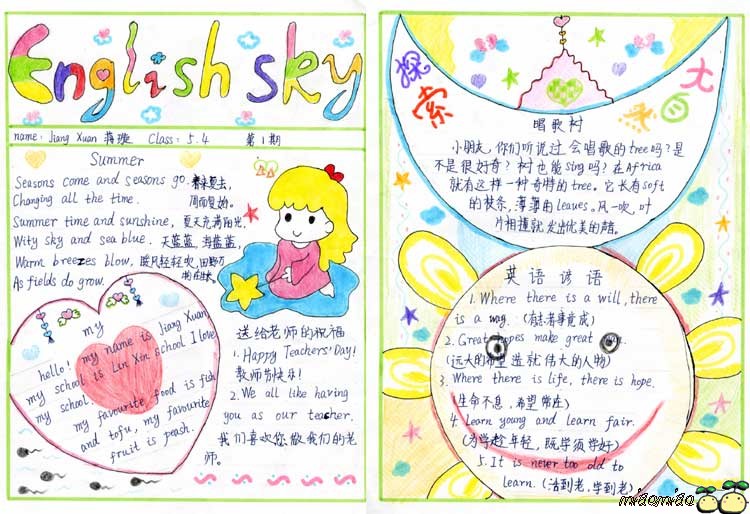 English sky
name: Jiang Xuan 蒋璇 Class: 5.4 第1期
Summer
Seasons come and seasons go, 春来夏去,
Changing all the time. 周而复始。
Summer time and sunshine, 夏天充满阳光,
Wity sky and sea blue. 天蓝蓝,海蓝蓝,
Warm breezes blow, 暖风轻轻吹,田野万
As fields do grow.
my
hello! my name is Jiang Xuan
my school is Lin Xin school I love
my school.
my favourite food is fish
and tofu, my favourite
fruit is peash.
送给老师的祝福
1. Happy Teachers' Day!
教师节快乐!
2. We all like having
you as our teacher.
我们喜欢您做我们的老
师。
探索
大
唱歌树
小朋友,你们听说过会唱歌的tree吗?是
不是很好奇?树也能sing吗?在Africa
就有这样一种奇特的tree。它长有soft
的枝条,薄薄的leaves。风一吹,叶
片相撞就发出优美的
英语谚语
1. Where there is a will, there
is a way. (有志者事竟成)
2. Great hopes make great
(远大的希望造就伟大的人物)
3. Where there is life, there is hope.
(生命不息,希望常在)
4. Learn young and learn fair.
(为学趁年轻,既学须学好)
5. It is never too old to
learn. (活到老,学到老)
miaomiao